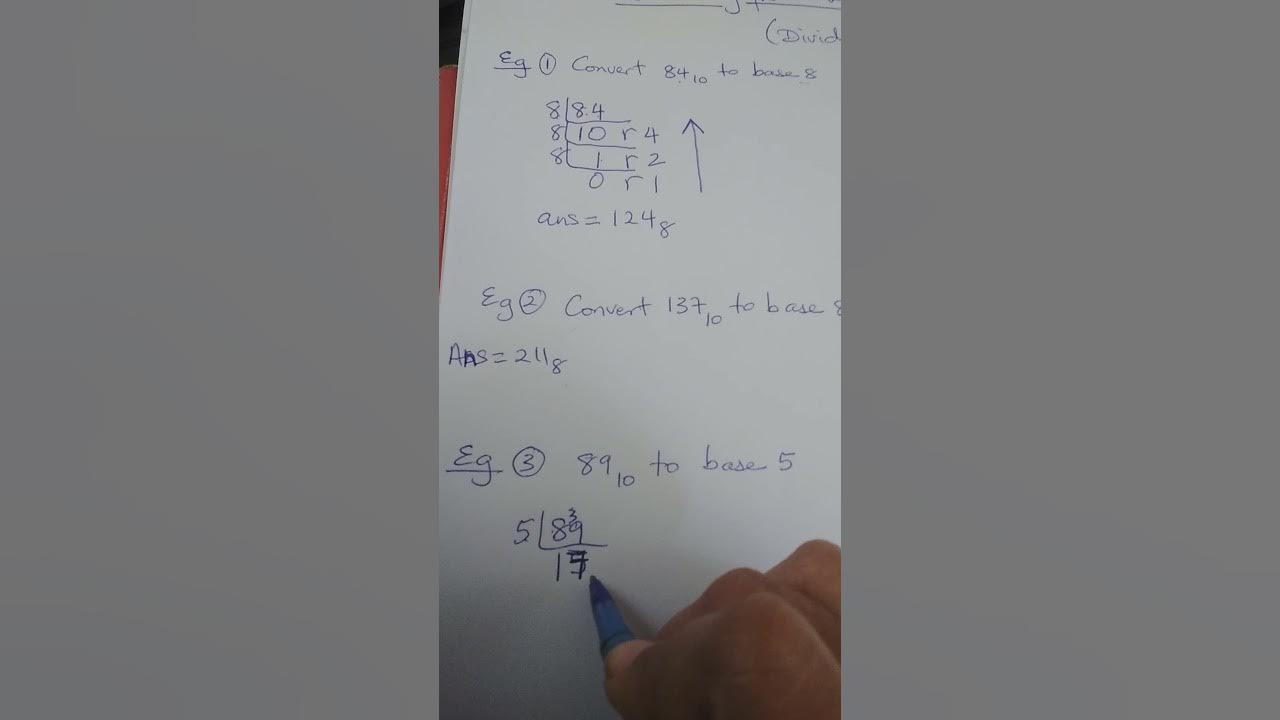 (Divid
Eg ① Convert 84₁₀ to base 8
8 84
8 10 r 4
8 1 r 2
0 r 1
ans = 124₈
Eg ② Convert 137₁₀ to base 8
Ans = 211₈
Eg ③ 89₁₀ to base 5
5 8³9
17